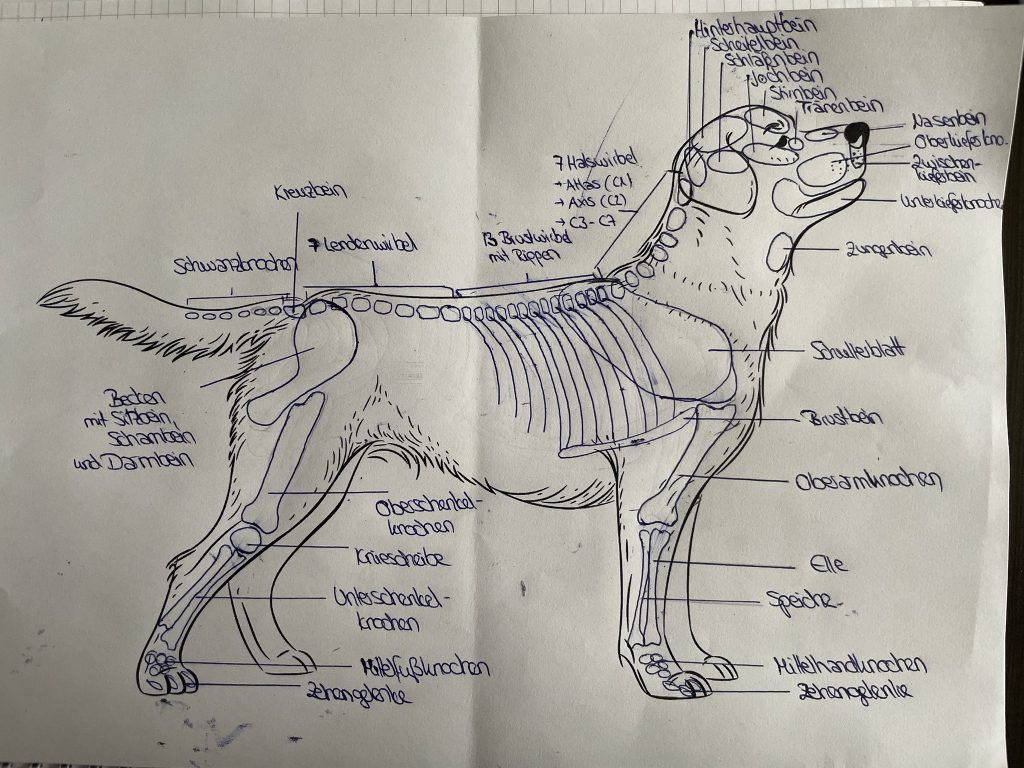 Hinterhauptbein
Scheitelbein
Schläfenbein
Jochbein
Stirnbein
Tränenbein
Nasenbein
Oberkieferkno.
Zwischen-
kieferbein
Unterkieferknochen
Zungenbein
7 Halswirbel
→ Atlas (C1)
→ Axis (C2)
→ C3 - C7
13 Brustwirbel
mit Rippen
7 Lendenwirbel
Kreuzbein
Schwanzknochen
Schulterblatt
Brustbein
Oberarmknochen
Elle
Speiche
Mittelhandknochen
Zehengelenke
Becken
mit Sitzbein,
Schambein
und Darmbein
Oberschenkel-
knochen
Kniescheibe
Unterschenkel-
knochen
Mittelfußknochen
Zehengelenke